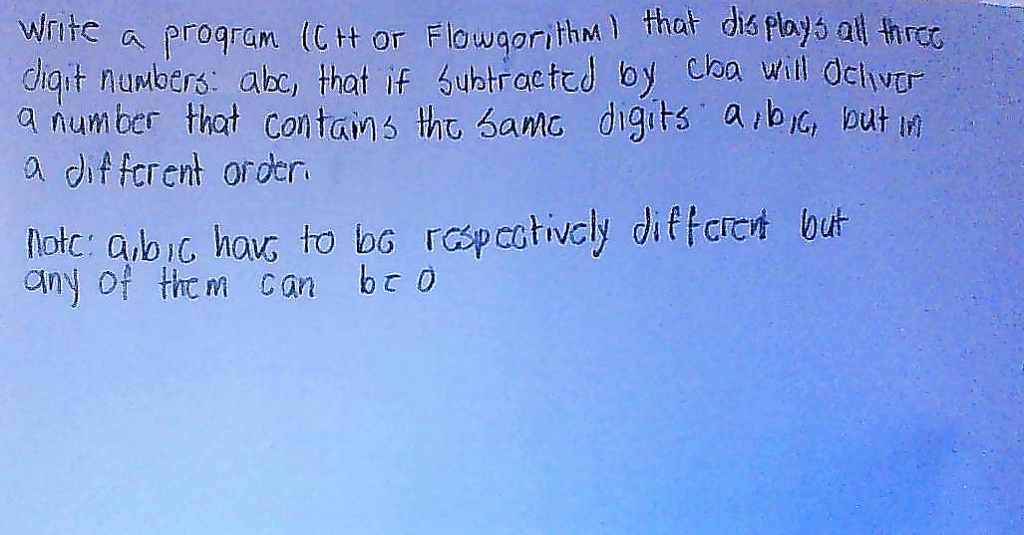 Write a program (C++ or Flowgorithm) that displays all three
digit numbers: abc, that if subtracted by cba will deliver
a number that contains the same digits a,b,c, but in
a different order.
Note: a,b,c have to be respectively different but
any of them can be 0